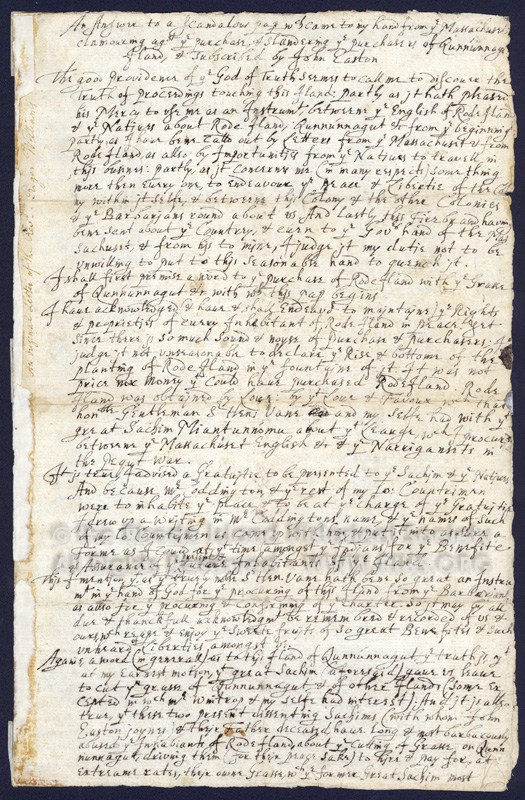 An Answere to a Scandalous pap wch came to my hand from ye Massachuset
clamouring agst ye purchase, & Slandering ye purchasers of Qunnunnagut
Island, & Subscribed by John Easton
The good Providence of ye God of Truth seemes to call me to discover the
Truth of Proceedings touching this Iland: partly as it hath pleased
his Mercy to use me as an Instrumt betweene ye English of Rode Iland
& ye Natives about Rode Iland, Qunnunnagut & from ye beginning
partly as I have bene calld out by Letters from ye Massachuset & from
Rode Iland, as also by Importunities from ye Natives to travell in
this busines: partly, as it concernes me (in many respects) something
more then every one, to endeavour ye peace & Libertie of this Colo
ny within it selfe, & betweene this Colony & the other Colonies
& ye Barbarians round about us And lastly this Fierbrand having
bene sent about ye Country, & even to ye Govrs hand of the Mas
sachuset, & from his to mine, I judge it my dutie not to be
unwilling to put to this Seasonable hand to quench it.
I shall first premise a word to ye purchase of Rode Iland with ye Grasse
of Qunnunnagut &c with wch this pap begins
I have acknowledged & have & shall Endeavour to maintaine ye Rights
& properties of every Inhabitant of Rode Iland in peace: yet
since there is so much sound & noyse of Purchase & Purchasers: I
judge it not unseasonable to declare ye Rise & bottome of the
planting of Rode Iland in ye Fountaine of it: It was not
price nor Money yt Could have purchased Rode Iland. Rode
Iland was obtained by Love: by ye Love & Favour wch that
honble Gentleman Sr Henry Vane and my selfe had with ye
great Sachim Miantunnomu about ye League, wch I procured
betweene ye Massachuset English &c & ye Narrigansets in
the Pequt War.
It is true I advised a Gratuitie to be presented to ye Sachim & ye Natives,
And because Mr Coddington & ye rest of my lo: Countrimen
were to inhabite ye place & to be at ye charge of ye Gratuities
I drew up a writing in Mr Coddingtons name & ye names of such
of my lo: Countrimen as came up with him & put it into as sure a
forme as I could at yt time amongst ye Indians for ye Benefite
& Assurance of ye present & future Inhabitants of ye Iland.
This I mention yt as yt truely noble Sr Henry Vane hath bene so great an Instru
mt in ye hand of God for ye procuring of this Iland from ye Barbarians,
as also for ye procuring & Confirming of ye Charter So it may by all
due & thankfull acknowledgmt be remembred & recorded of us &
ours, who reape & enjoy ye sweete fruits of so great Benefites & such
unheard of Liberties amongst us.
Againe a word (in generall) as to this Iland of Qunnunnagut ye truth is yt
at my Earnest motion ye great Sachim aforesaid gave us leave
to cut ye grasse of Qunnunnagut, & of other Ilands (Some Ex
cepted in wch Mr Wintrop & my selfe had interest) And it is also
true, yt these two present dissenting Sachims (with whom John
Easton joynes) & theyr Father deceased have long & most barbarously
abused ye Inhabiants of Rode Iland, about ye Cutting of Grasse, on Qunn
unnagut, driving them (for their peace sake) to hire & pay for, at
Extreame rates, their owne Grasse wch ye former Great Sachim most